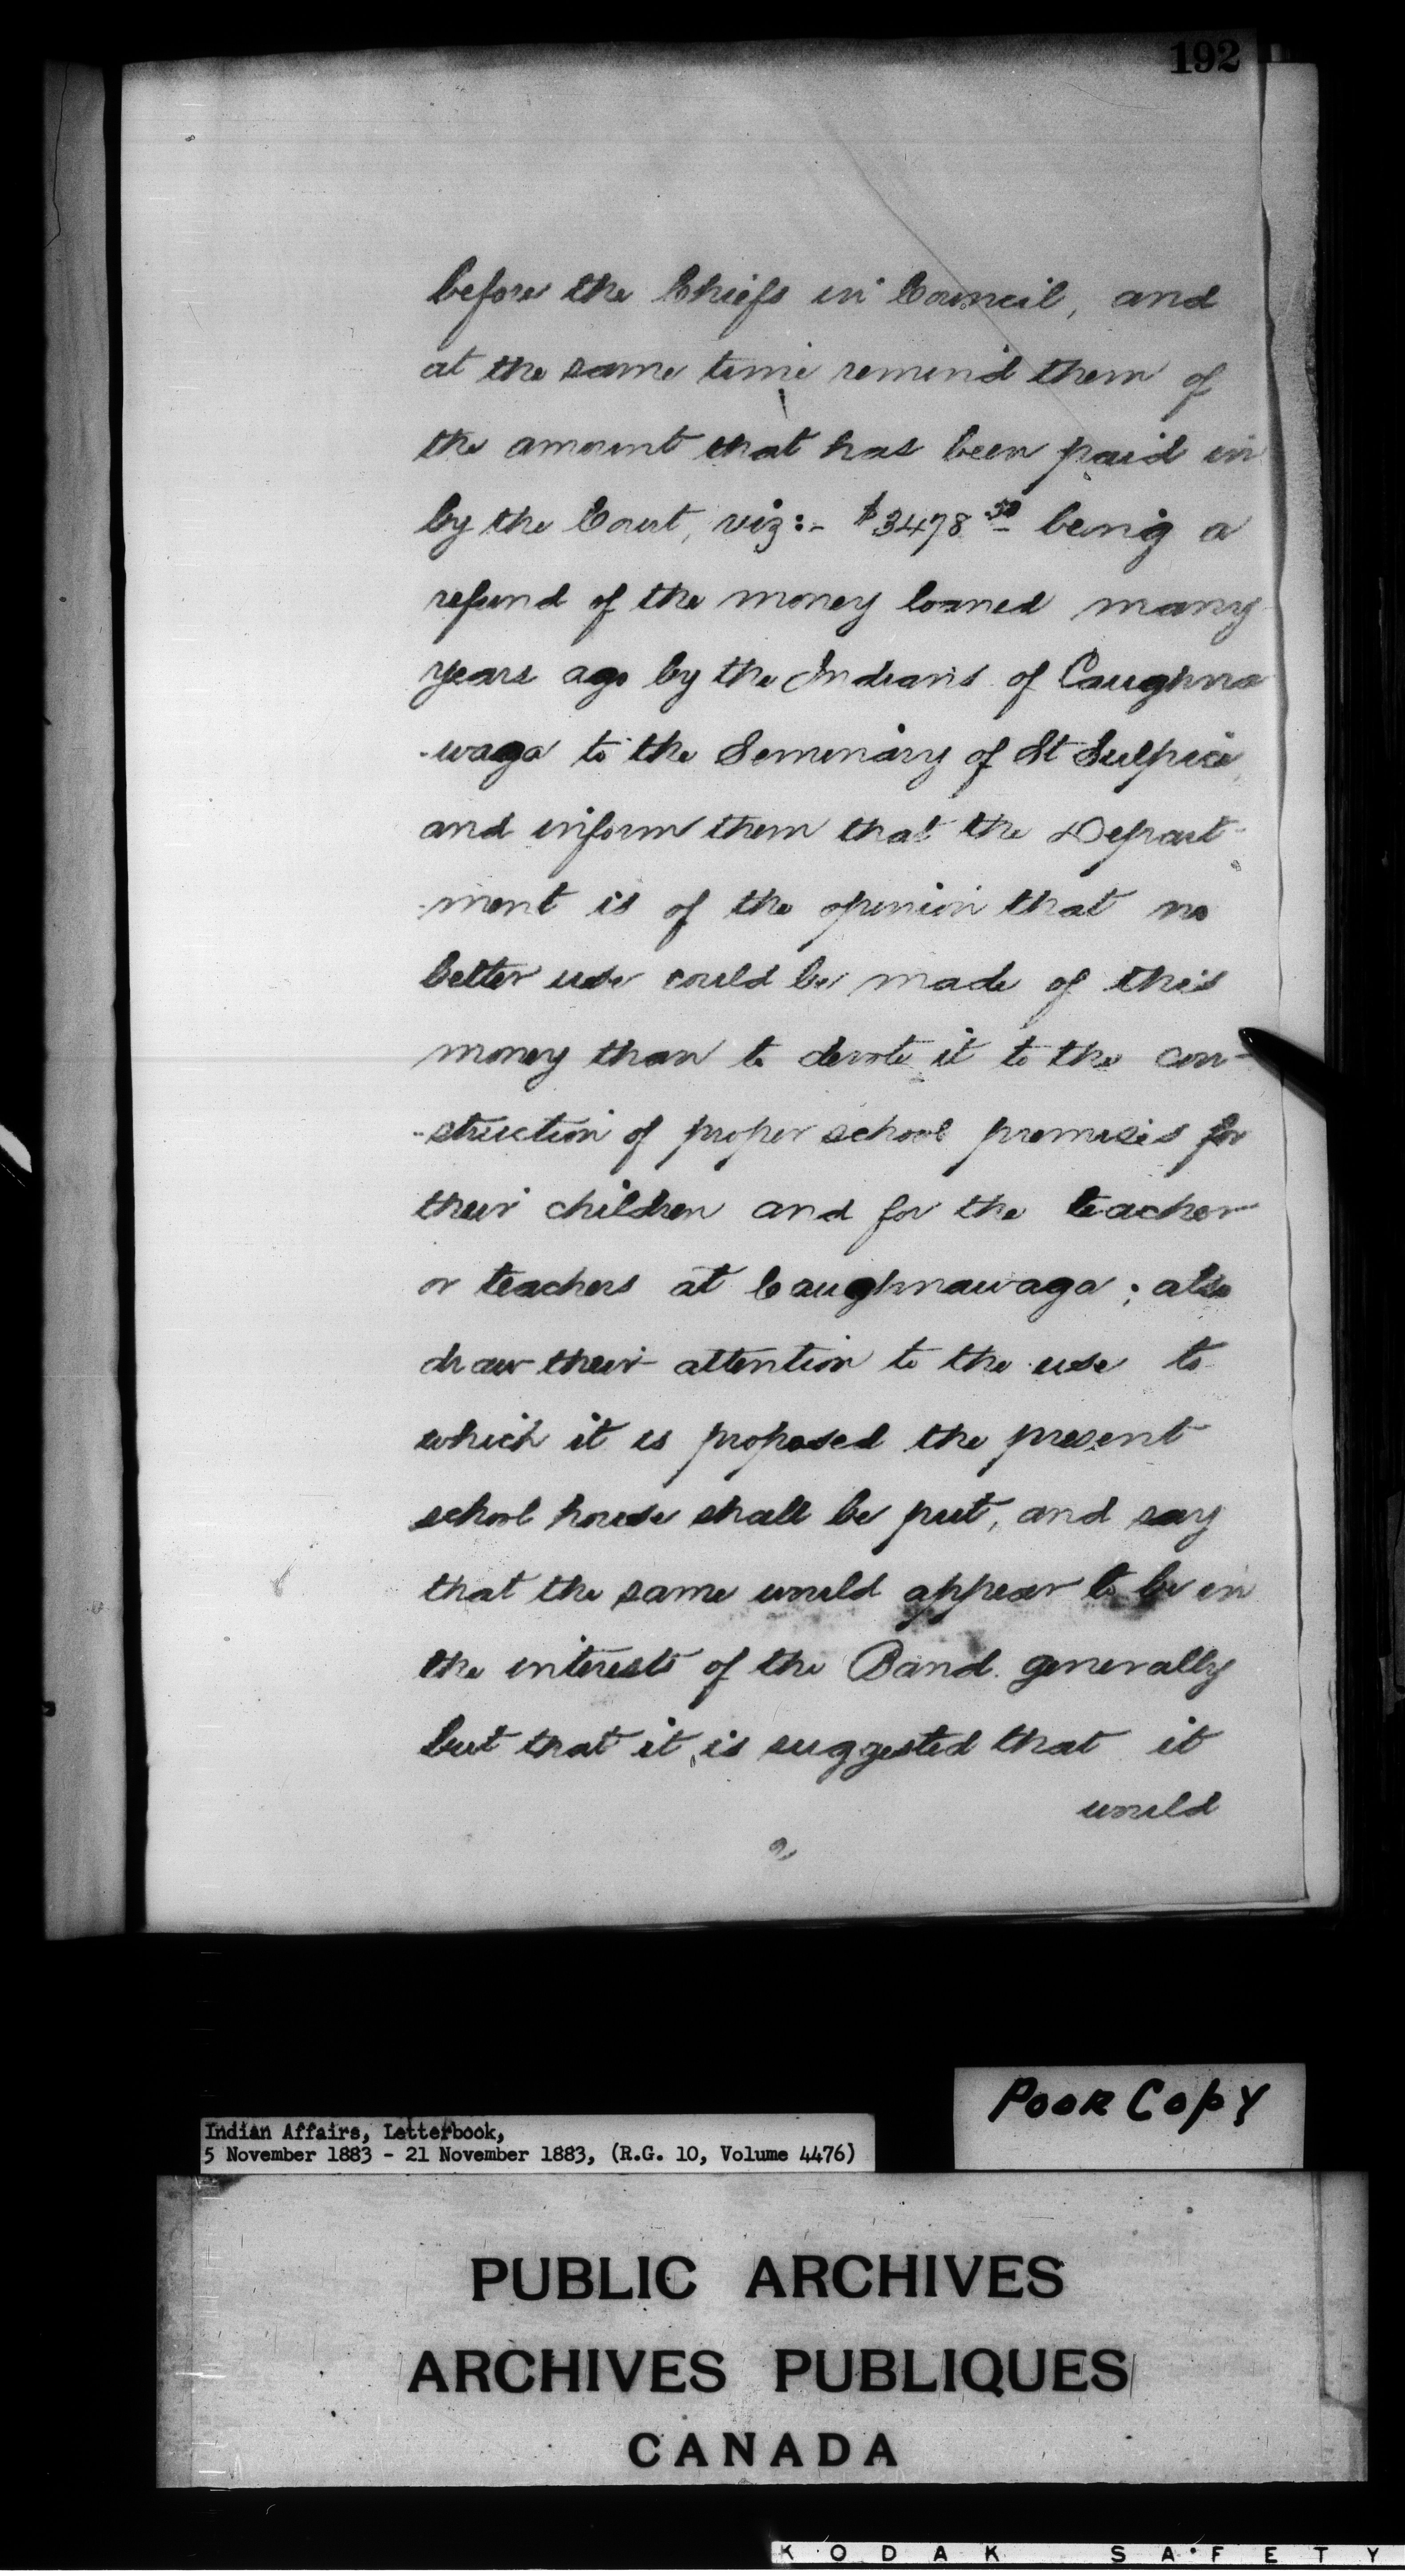 192
before the Chiefs in Council, and
at the same time remind them of
the amount that has been paid in
by the Court, viz:- $3478.50 being a
refund of the money loaned many
years ago by the Indians of Caughna
-waga to the Seminary of St Sulpice,
and inform them that the Depart-
-ment is of the opinion that no
better use could be made of this
money than to devote it to the con-
-struction of proper school premises for
their children and for the teacher
or teachers at Caughnawaga; also
draw their attention to the use to
which it is proposed the present
school house shall be put, and say
that the same would appear to be in
the interests of the Band generally
but that it is suggested that it
would
2
Poor Copy
Indian Affairs, Letterbook,
5 November 1883 - 21 November 1883, (R.G. 10, Volume 4476)
PUBLIC ARCHIVES
ARCHIVES PUBLIQUES
CANADA
KODAK SAFETY